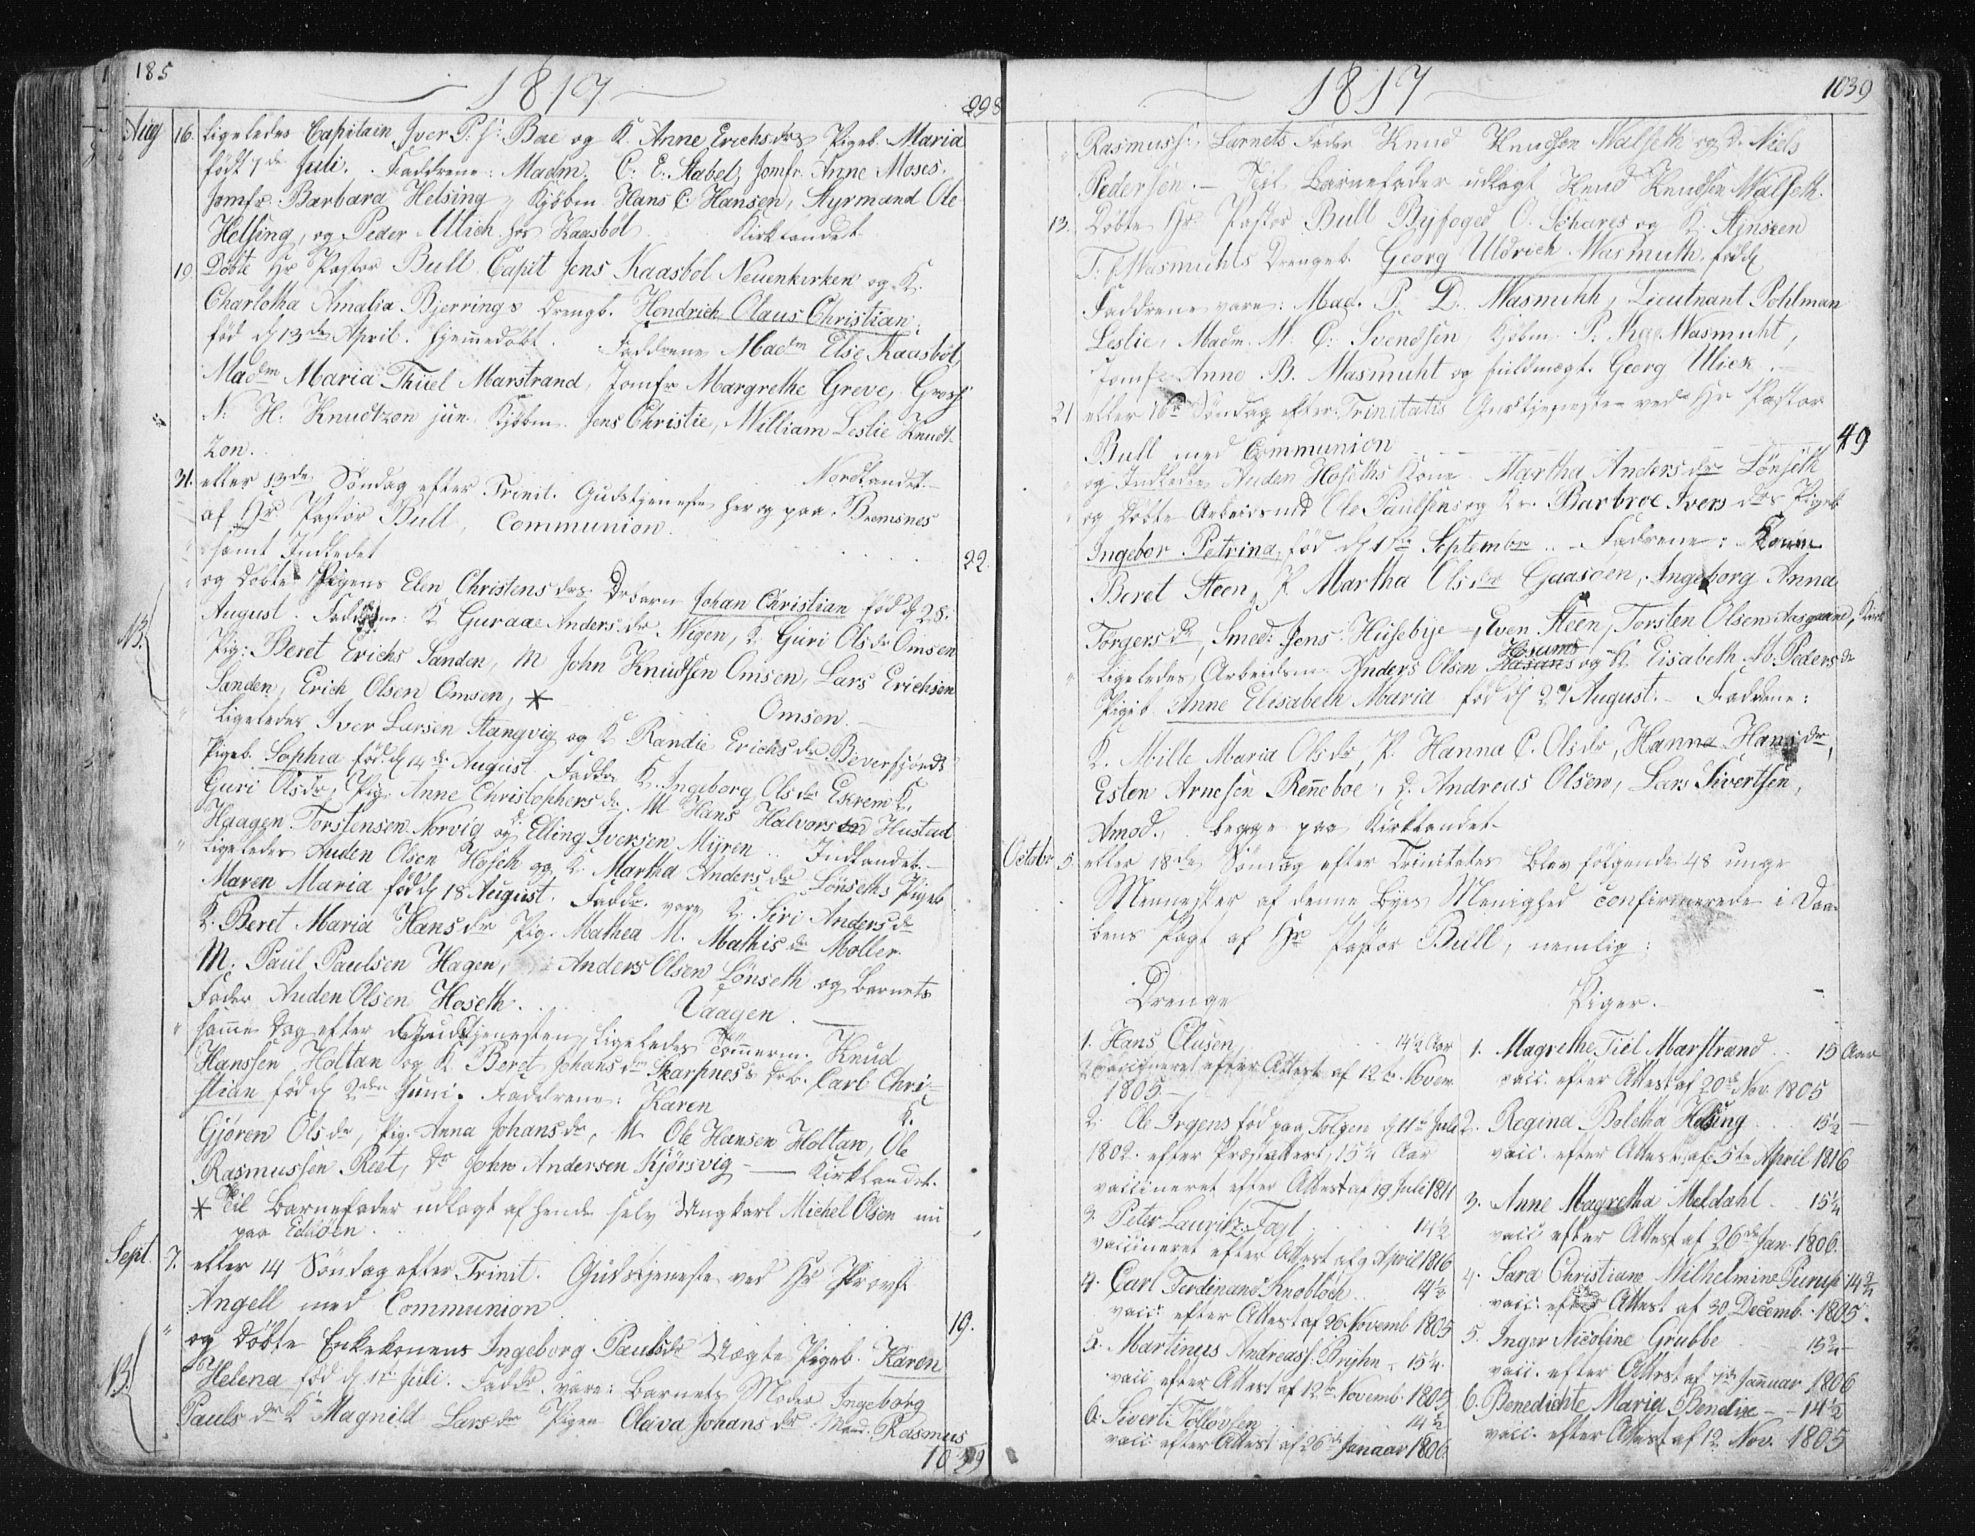 185
1817
998
Aug 16. Ligeledes Capitain Iver P. S: Bae og K. Anne Erichsdr Pigeb. Maria
født 7de Juli. Faddrene: Madm. C. E. Stabel, Jomfr. Anne Moses.
Jomfr. Barbara Helsing, Kjøbm. Hans C: Hansen, Styrmand Ole
Helsing, og Peder Ulich hos Kaasbøl. Kirklandet
19. Døbte Hr Pastor Bull Capit Jens Kaasbøl Neuenkirken og K.
Charlotha Amalia Bjerrings Drengb. Hendrich Olaus Christian,
fød d 13de April. hjemmedøbt. Faddrene Madm Else Kaasbøl,
Madm Maria Thiel Marstrand, Jomfr Margrethe Greve, Gross.
N: H. Knudtzon jun. Kjøbm. Jens Christie, William Leslie Knudt-
zon. Nordlandet
31. eller 13de Søndag efter Trinit. Gudstjeneste her og paa Bremsnes
af Hr Pastor Bull, Communion.
samt Indledet 22
og døbte Pigens Elen Christens dr. Drbarn Johan Christian fød d 28.
August. Faddrene: K Guraae Anders dr. Vigen, K. Guri Ols dr Omsen
Pig: Beret Erichs Sanden, M John Knudtsen Omsen, Lars Erichsen
Sanden, Erich Olsen Omsen, * Omsen.
Ligeledes Iver Larsen Stangvig og K Randie Erichs dr Beverfjords
Pigeb. Sophia, fød d 14de August. Faddr. K. Ingeborg Ols dr Ekrem K.
Guri Olsdr, Pig. Anne Christophers dr. M Hans Halvorsen Hustad
Haagen Torstensen Norvig og Elling Iversen Myren .. Indlandet.
Ligeledes Auden Olsen Hoseth og K. Martha Anders dr Lønseths Pigeb
Maren Maria fød d 18 August. Faddr. vare K. Siri Anders dr
K. Beret Maria Hans dr Pig. Mathea M. Mathis dr Møller
M. Paul Paulsen Hagen, Anders Olsen Lønseth og Barnets
Fader Auden Olsen Hoseth. Vaagen.
samme Dag efter Gudstjenesten, Ligeledes Tømmerm. Knud
Hanssen Holtan og K Beret Johans dr Skarpnes's Drb. Carl Chri-
stian fød d 2den Juni. Faddrene: Karen K.
Gjøren Ols dr, Pig. Anna Johansdr, M Ole Hansen Holtan, Ole
Rasmussen Reet, Dr John Andersen Kjørsvig — Kirklandet.
* Til Barnefader udlagt af hende selv Ungkarl Michel Olsen nu
paa Edøen.
Sept. 7. eller 14 Søndag efter Trinit. Gudstjeneste ved Hr Provst
Angell med Communion 19.
og Døbte Enkekonens Ingeborg Paulsdr Uægte Pigeb. Karen
Helena fød d 1ste Juli. Faddr. vare: Barnets Moder Ingeborg
Pauls dr K Magnild Larsdr Pigen Olava Johans dr Mand. Rasmus
1039
1817
1039
Rasmuss:, Barnets Fader Knud Knudsen Walseth og D. Niels
Pedersen. — Til Barnefader udlagt Knud Knudsen Walseth.
13. Døbte Hr Pastor Bull Byfoged O. Schares og K.
T. Wasmuhts Drengeb. Georg Uldrich Wasmuth, født
Faddrene vare: Mad. P. D. Wasmuhh, Lieutnant Pohlman
Leslie, Madm. M. C: Svendsen Kjøbm. P: Wasmuht,
Jomfr Anne B. Wasmuht og fuldmægt. Georg Ulick.
21 eller 16de Søndag efter Trinitatis Gudstjeneste ved Hr Pastor
Bull med Communion 49
og Indledet Auden Hoseths Kone Martha Anders dr Lønseth
og døbte Arbeidsmd Ole Paulsens og K. Barbroe Ivers drs Pigeb
Ingebor Petrina, fød d 1ste Septembr .. Fadrene: Konen
Beret Steen, P Martha Olsdr Gaasøen, Ingeborg Anna
Torgers dr, Smed: Jens Huseby, Even Steen, Torsten Olsen Aasgaard, Kirk
Ligeledes Arbeidsm Anders Olsen Hasans Hosums og K Elisabeth Mb. Peders dr
Pigeb. Anne Elisabeth Maria fød d 27 August. Fadrene:
K. Mille Maria Ols dr, P. Hanna C. Ols dr, Hanna Hansdr,
Esten Arnesen Renneboe, D. Andreas Olsen, Lars Sivertsen,
Amod. begge paa Kirklandet
Octobr 5. eller 18de Søndag efter Trinitatis blev følgende 48 unge
Mennesker af denne Byes Menighed confirmerede i Daa-
bens Pagt af Hr Pastor Bull, nemlig:
Drenge
1. Hans Clusen 14½ Aar
vaccineret efter Attest af 12te Novem.
1805.—
2. Ole Irgens fød paa Tolgen d 11te Juli
1802. efter Præsteattest, 15¼ Aar
vaccineret efter Attest af 19 Juli 1811
3. Peter Lauritz Fogt 14½
vaccineret efter Attest af 9 April 1816
4. Carl Ferdinand Knobloch 14½
vacc: efter Attest af 26 Novemb 1805
5. Martinus Andreas Bryhn 15¼
vacc efter Attest af 12te Novemb. 1805
6. Sivert Tostøvsen 14½
vacc efter Attest af 26de Januar 1806.
Piger.
1. Magrethe Tiel Marstrand 15 Aar
vacc. efter Attest af 20de Nov. 1805
2. Regina Boletha Helsing 15½ —
vacc. efter Attest af 5te April 1816
3. Anne Magretha Meldahl 15¼
vacc efter Attest af 26de Jan. 1806.
4. Sara Christiane Wilhelmine Purup 14¾
vacc. efter Attest af 30 Decemb. 1805.
5. Inger Nicoline Grubbe 15¾
vacc. efter Attest af 7de Januar 1806
6. Benedichte Maria Bendixe 14½
vacc. efter Attest af 12 Nov. 1805